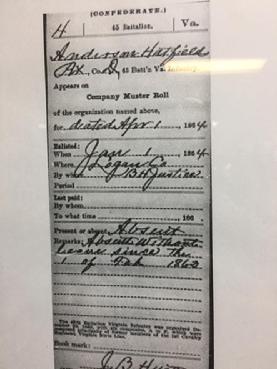 (CONFEDERATE.)
H 45 Battalion. Va.
Anderson Hatfield
Co. D, 45 Batt'n Va. Infantry.
Appears on
Company Muster Roll
of the organization named above,
for dated Apr 1, 1864
Enlisted:
When Jan 1, 1864
Where Logan Co
By whom J B H Justice
Period
Last paid:
By whom
To what time , 186 .
Present or absent Absent
Remarks: Absent Without
leave since the
1 of Feb 1863
The 45th Battalion Virginia Infantry was organized
Book mark: